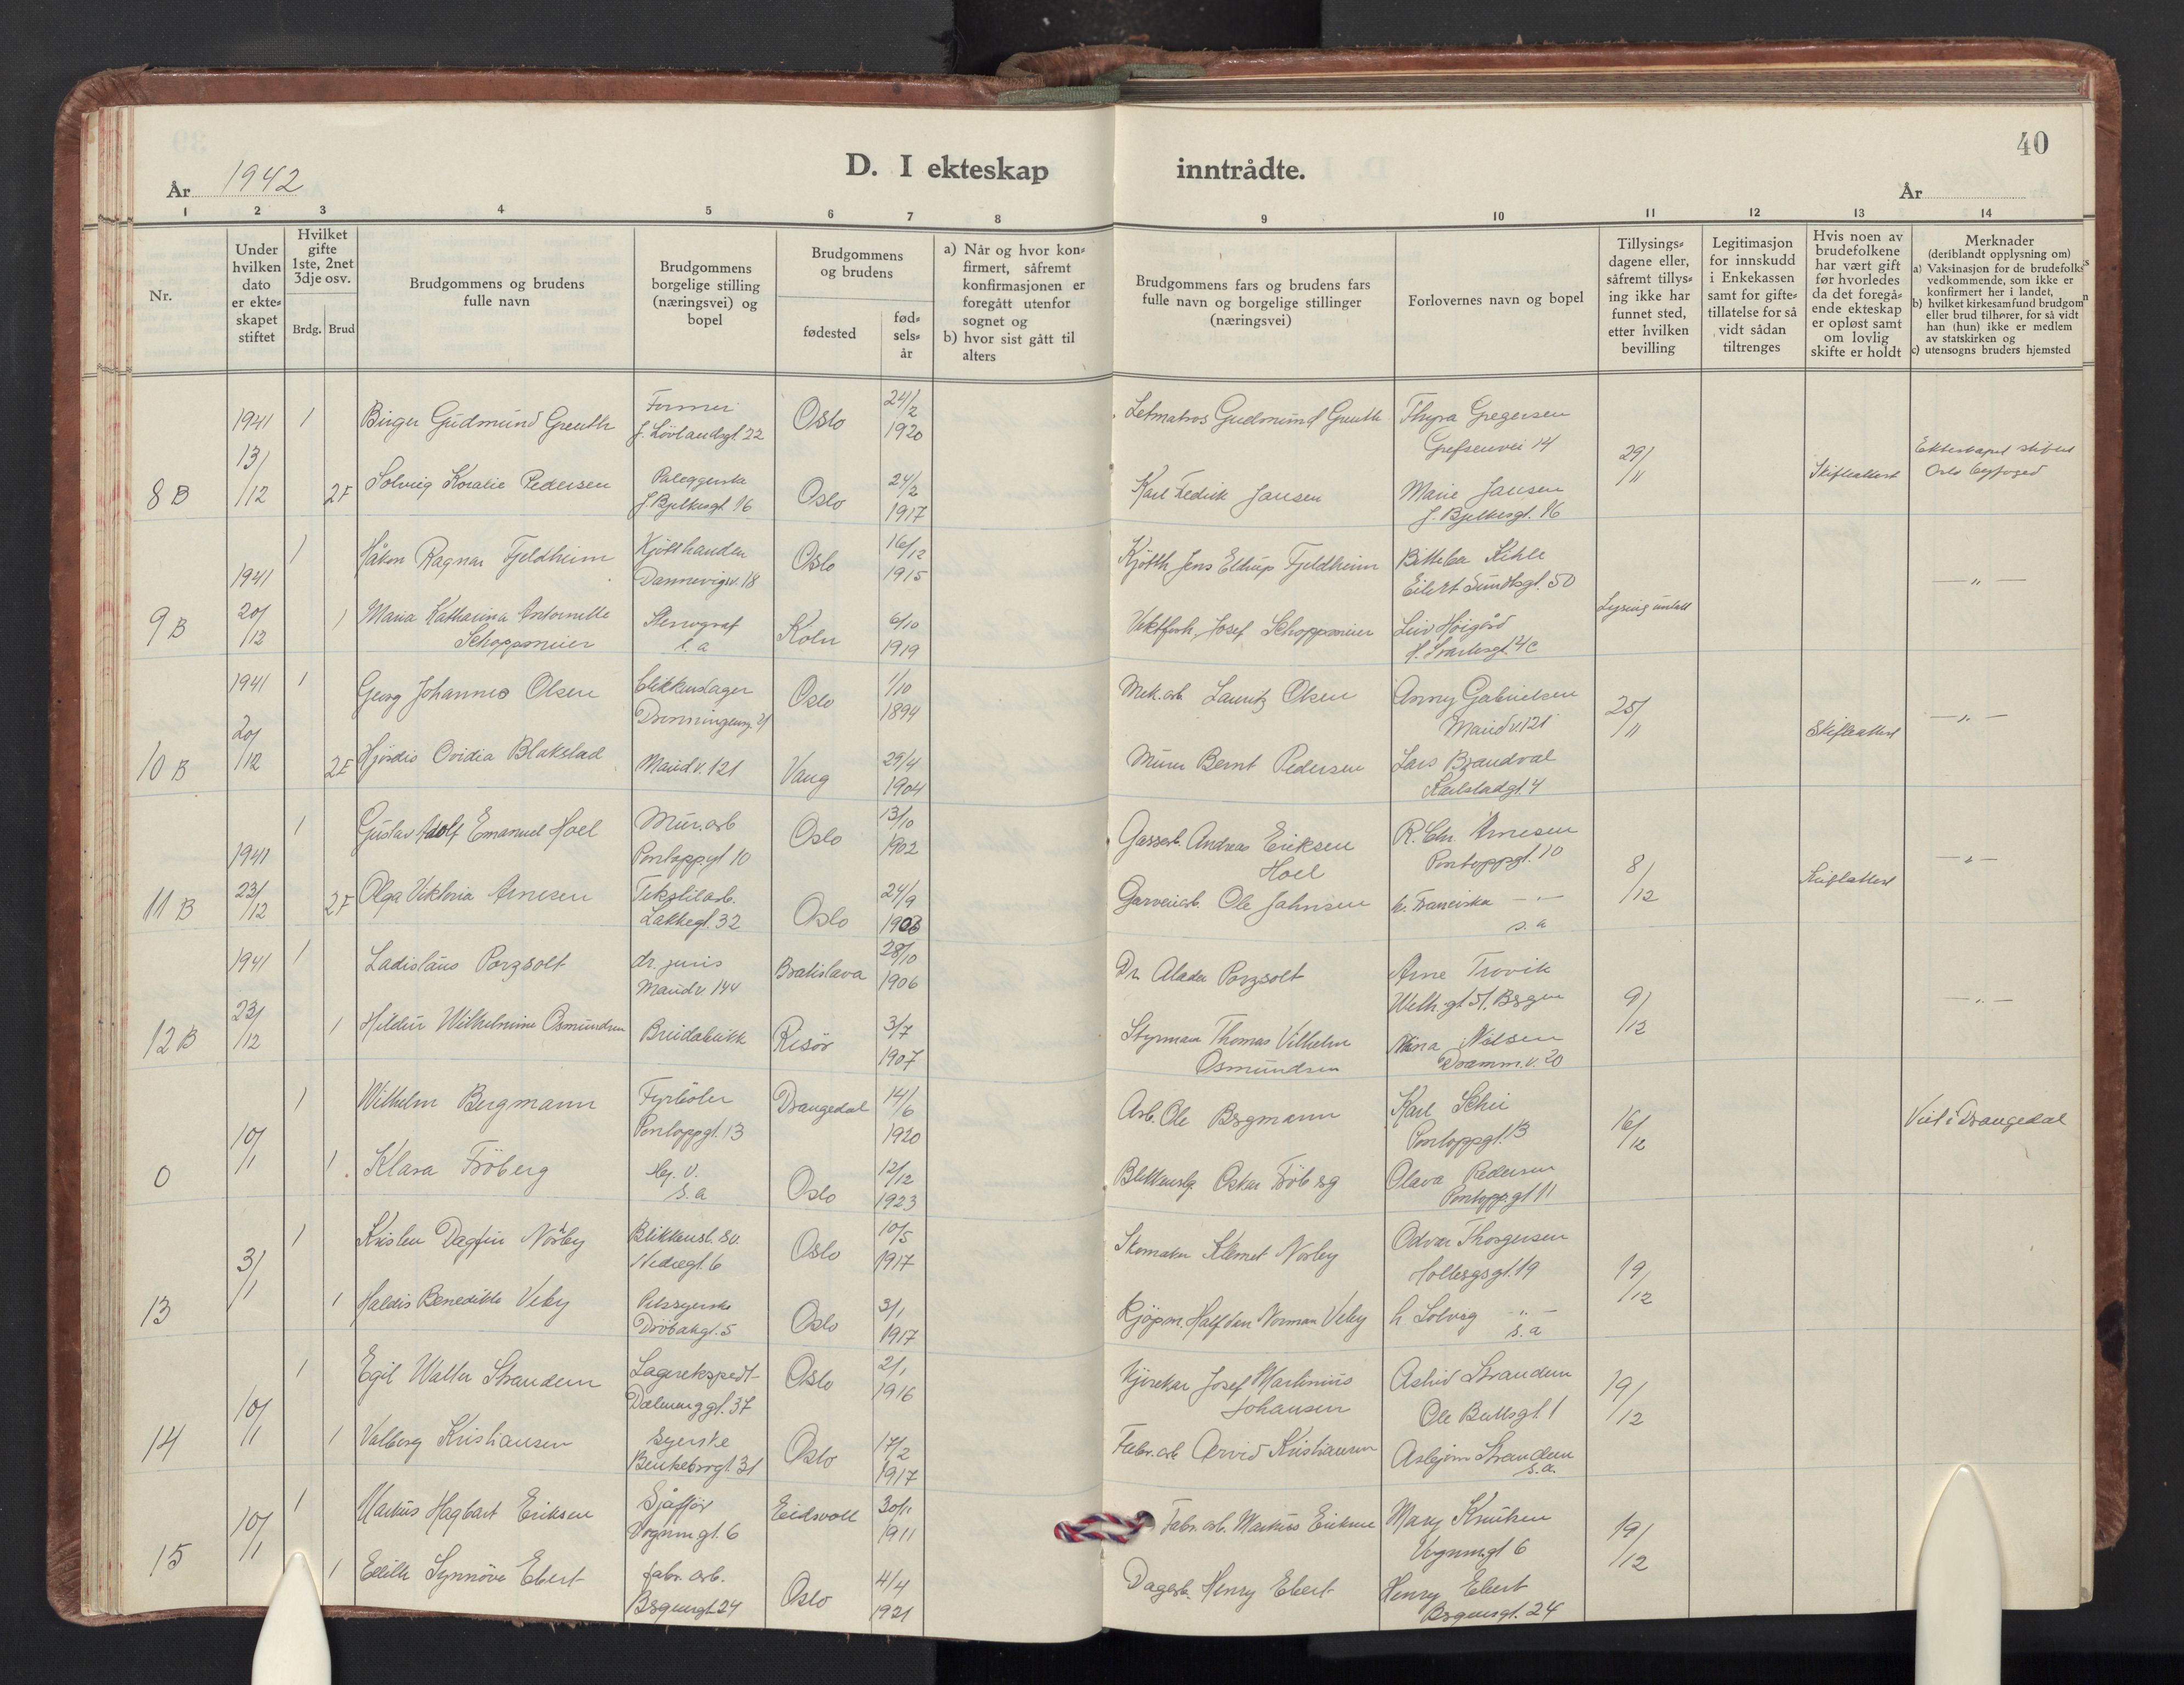 År 1942
D. I ekteskap inntrådte.
40
År
1 2 3 4 5 6 7 8 9 10 11 12 13 14
Nr.
Under hvilken dato er ekteskapet stiftet
Hvilket gifte 1ste, 2net 3dje osv.
Brdg. Brud
Brudgommens og brudens fulle navn
Brudgommens borgelige stilling (næringsvei) og bopel
Brudgommens og brudens
fødested
fødselsår
a) Når og hvor konfirmert, såfremt konfirmasjonen er foregått utenfor sognet og
b) hvor sist gått til alters
Brudgommens fars og brudens fars fulle navn og borgelige stillinger (næringsvei)
Forlovernes navn og bopel
Tillysingsdagene eller, såfremt tillysing ikke har funnet sted, etter hvilken bevilling
Legitimasjon for innskudd i Enkekassen samt for giftetillatelse for så vidt sådan tiltrenges
Hvis noen av brudefolkene har vært gift før hvorledes da det foregående ekteskap er opløst samt om lovlig skifte er holdt
Merknader (deriblandt opplysning om)
a) Vaksinasjon for de brudefolks vedkommende, som ikke er konfirmert her i landet,
b) hvilket kirkesamfund brudgom eller brud tilhører, for så vidt han (hun) ikke er medlem av statskirken og
c) utensogns bruders hjemsted
8 B 1941 13/12 1 Birger Gudmund Greuth Former J. Lövlandsgt 22 Oslo 24/2 1920 Letmatros Gudmund Greuth Thyra Gregersen Grefsenvei 14 29/11 Skifteattest Ekteskapet stiftet Oslo byfoged
2F Solveig Koralie Pedersen Paleggerska J. Bjelkesgt. 16 Oslo 24/2 1917 Karl Fredrik Jansen Marie Jansen J. Bjelkesgt. 16
9 B 1941 20/12 1 Håkon Ragnar Fjeldheim Kjötthandler Dannevigsv. 18 Oslo 16/12 1915 Kjötth. Jens Eltrup Fjeldheim Kihle Eilert Sundtsgt. 50 Lysing untatt — " —
1 Maria Katharina Antoinette Schoppmeier Stenograf s. a Köln 6/10 1919 Josef Schoppmeier Leiv Höigård
10 B 1941 20/12 1 Georg Johannes Olsen Blikkenslager Oslo 1/10 1894 Mek. arb. Lauritz Olsen Anny Gabrielsen Maudv. 121 25/11 Skifteattest — " —
2F Hjördis Ovidia Blakstad Maudv. 121 Vang 29/4 1904 Murer Bernt Pedersen Lars Brandval Karlstadgt. 4
11 B 1941 23/12 1 Gustav Adolf Emanuel Hoel Mur. arb Pontoppgt 10 Oslo 13/10 1902 Gassarb. Andreas Eriksen Hoel R. Chr. Arnesen Pontoppgt. 10 8/12 Skifteattest — " —
2F Olga Viktoria Arnesen Tekstilarb. Lakkegt. 32 Oslo 24/9 1903 Garveriarb. Ole Jahnsen h. Franciska — " — s. a
12 B 1941 23/12 1 Ladislaus Porzsolt dr. juris Maudv. 144 Bratislava 28/10 1906 Dr. Aladar Porzsolt Arne Trovik Welh. gt. 51. Bergen 9/12 — " —
1 Hildur Wilhelmine Osmundsen Risör 3/7 1907 Styrman Thomas Vilhelm Osmundsen Nina Nilsen Dramm. v. 20
0 10/1 1 Wilhelm Bergmann Fyrböter Pontoppgt. 13 Drangedal 14/6 1920 Arb. Ole Bergmann Karl Schie Pontoppgt. 13 16/12 Viet i Drangedal
1 Klara Fröberg Hj. v. s. a Oslo 12/12 1923 Blikkenslg. Oskar Fröberg Olava Pedersen Pontopp. gt 11
13 3/1 1 Kristen Dagfin Norby Blikkensl. sv. Nedregt. 6 Oslo 10/5 1917 Skomaker Klemet Norby Odvar Thorgersen Holbergsgt. 19 19/12
1 Haldis Benedikte Veby Pelssyerske Dröbakgt. 5 Oslo 3/1 1917 Kjöpm. Halfdan Norman Veby h Solveig — " — s. a
14 10/1 1 Egil Walter Strandem Lagerekspedt. Dælenenggt. 37 Oslo 2/1 1916 Kjörekar Josef Martinius Johansen Astrid Strandem Ole Bullsgt. 1 19/12
1 Valborg Kristiansen Syerske Bentsebrogt. 31 Oslo 17/2 1917 Fabr. arb Arvid Kristiansen Asbjörn Strandem s. a.
15 10/1 1 Markus Hagbart Eriksen Sjåför Vognmgt. 6 Eidsvoll 30/11 1911 Fabr. arb. Markus Eriksen Mary Knutsen Vognm.gt 6 19/12
1 Edith Synnöve Ebert fabr. arb. Bergensgt. 24 Oslo 4/4 1921 Dagarb. Henry Ebert Henry Ebert Bergensgt. 24